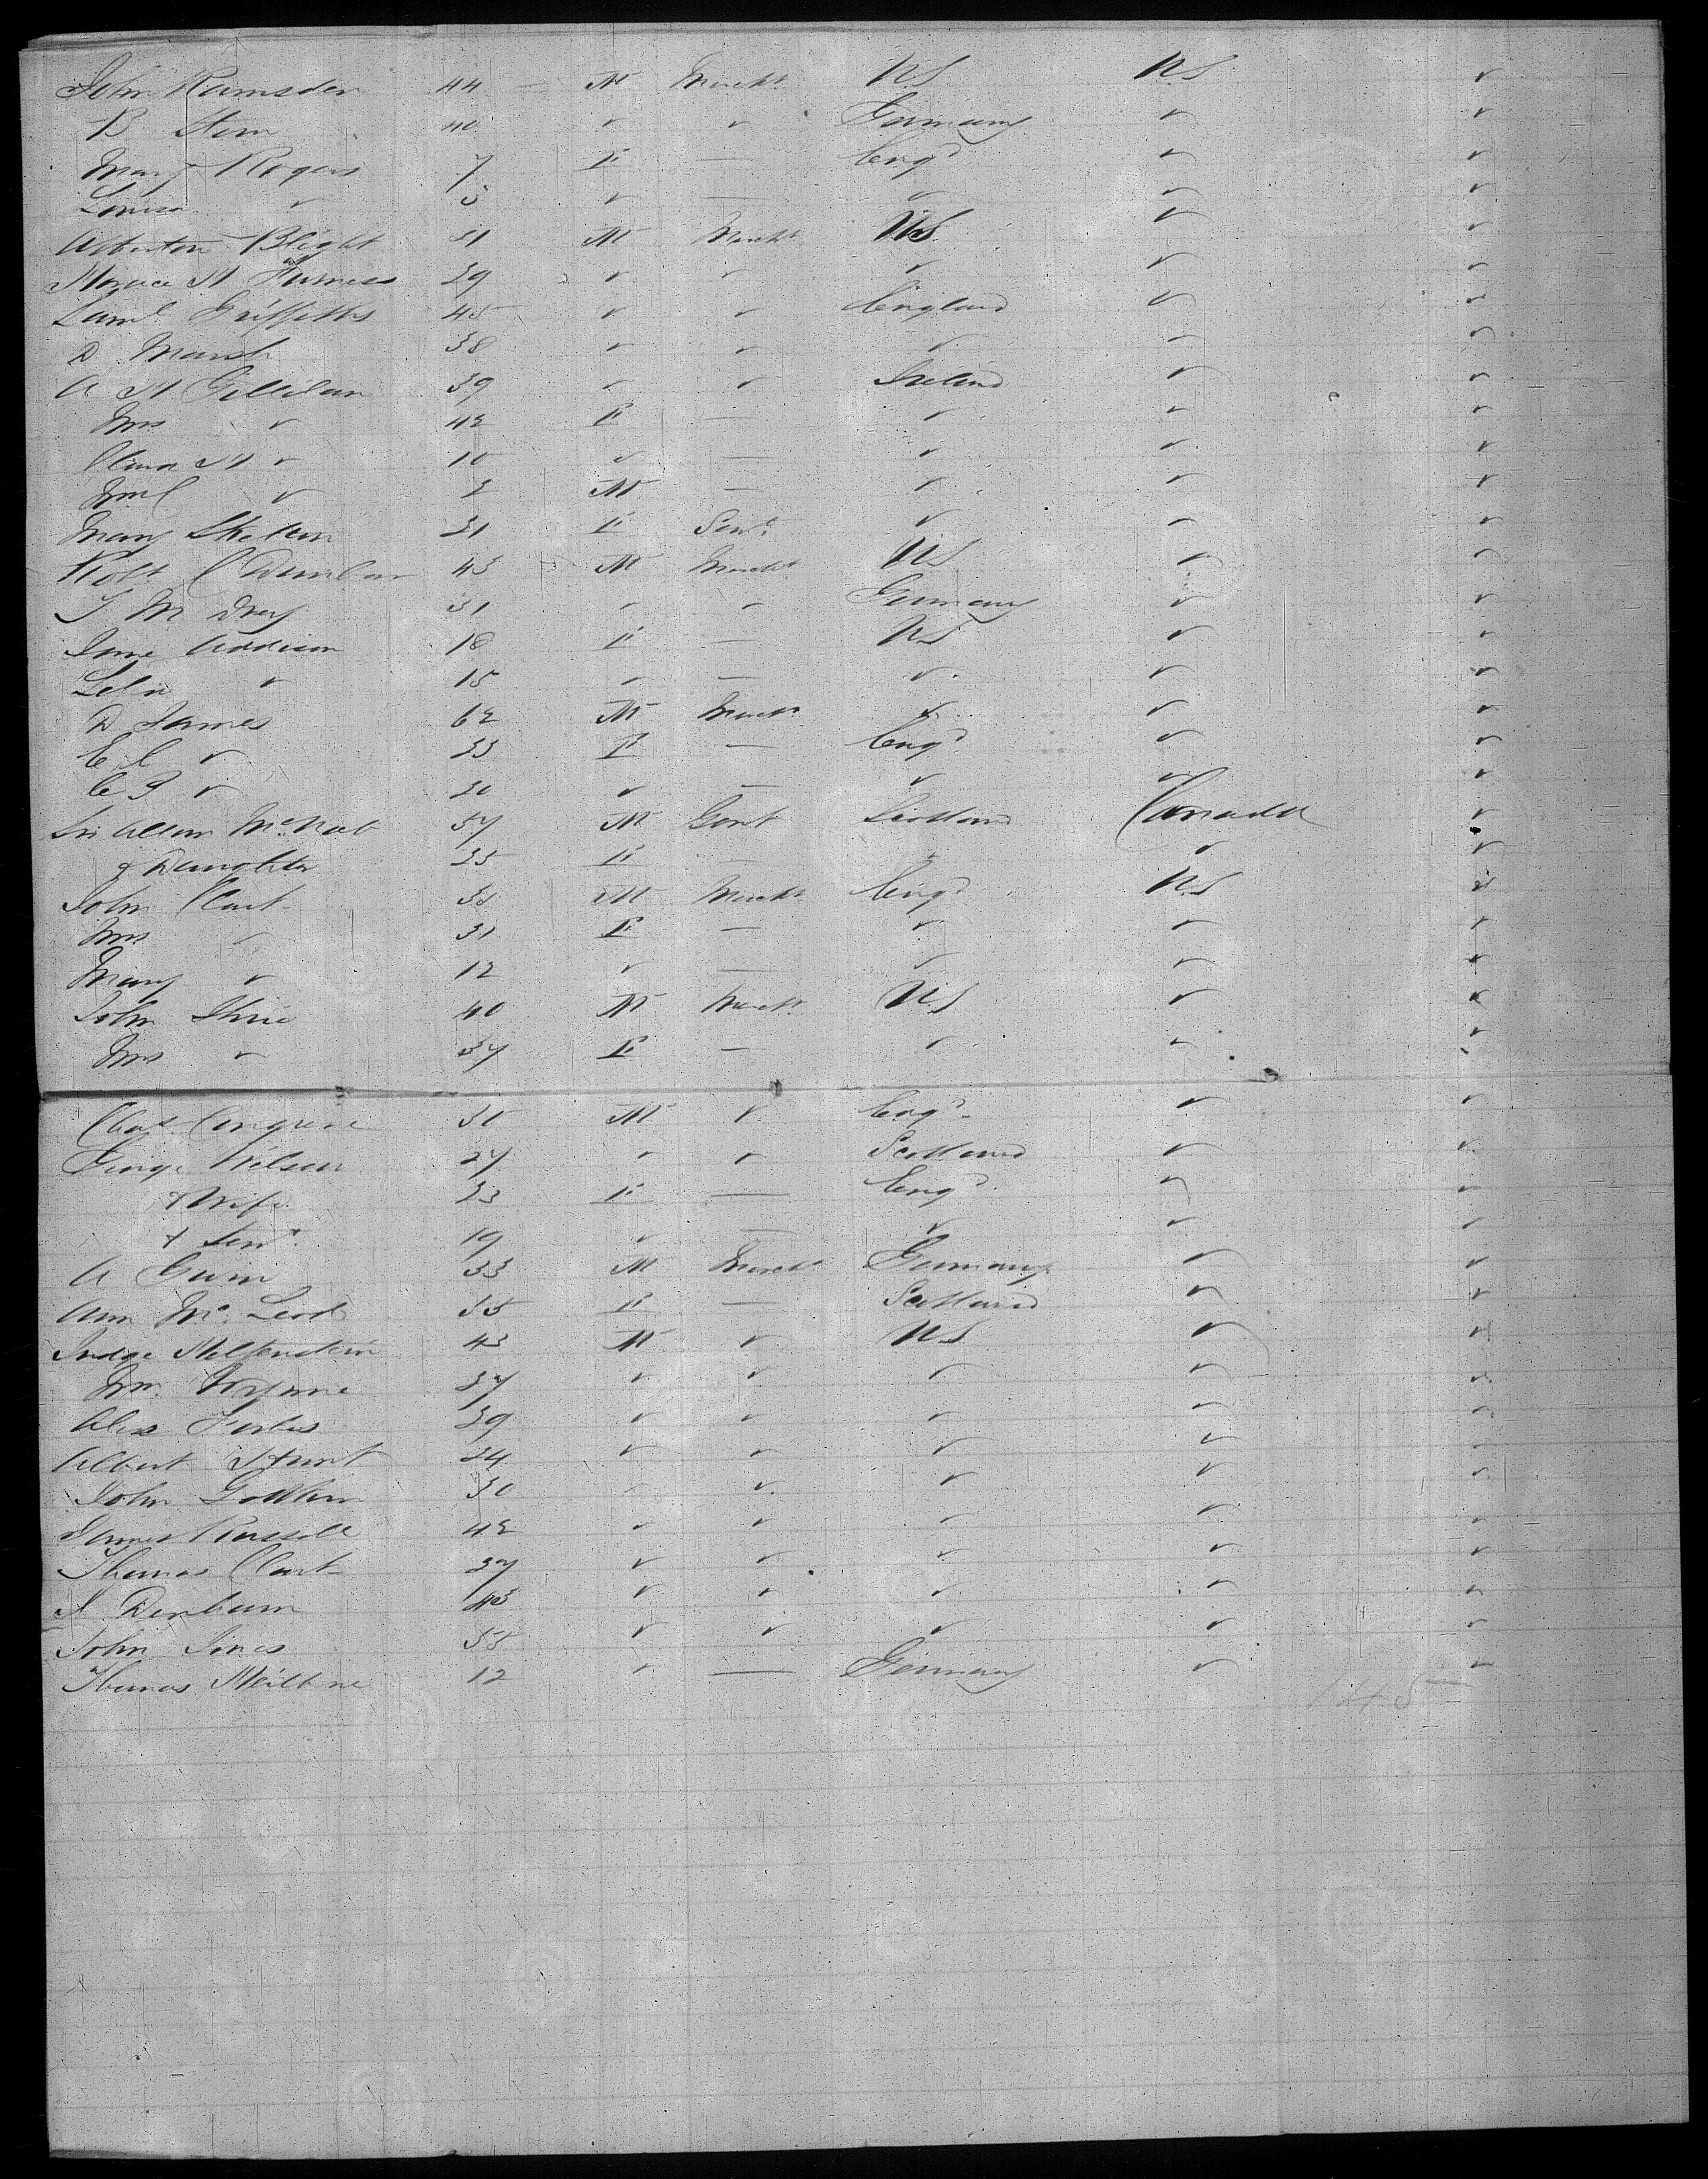 John Ramsden 44 — M Mercht U.S U.S ✓
B Stern 40 ✓ ✓ Germany ✓ ✓
Mary Rogers 7 F — Engd ✓ ✓
Louisa ✓ 5 ✓ — ✓ ✓ ✓
Atherton Blight 31 M Mercht U.S. ✓ ✓
Horace H Furness 39 ✓ ✓ ✓ ✓ ✓
Saml Griffiths 45 ✓ ✓ England ✓ ✓
D Marsh 38 ✓ ✓ ✓ ✓ ✓
A H Gillilan 39 ✓ ✓ Ireland ✓ ✓
Mrs ✓ 42 F — ✓ ✓ ✓
Clara H ✓ 10 ✓ — ✓ ✓ ✓
✓ 2 M — ✓ ✓ ✓
Mary Skelton 31 F Servt ✓ ✓ ✓
Robt C Dunbar 43 M Mercht U.S ✓ ✓
31 ✓ ✓ Germany ✓ ✓
Jane Addison 18 F — U.S ✓ ✓
✓ 15 ✓ — ✓ ✓ ✓
D James 62 M Mercht ✓ ✓ ✓
E C ✓ 33 F — Engd ✓ ✓
✓ 30 ✓ — ✓ ✓ ✓
Sir Allan McNab 57 M Gent Scotland Canada ✓
& Daughter 25 F — ✓ ✓ ✓
John Clark M Mercht Engd U.S ✓
Mrs ✓ 31 F — ✓ ✓ ✓
Mary ✓ 12 ✓ — ✓ ✓ ✓
John 40 M Mercht U.S ✓ ✓
Mrs ✓ 37 F — ✓ ✓ ✓
Chas Congreve M ✓ Engd ✓ ✓
George Wilson 27 ✓ ✓ Scotland ✓ ✓
& Wife 23 F — Engd ✓ ✓
& Servt 19 ✓ — ✓ ✓ ✓
A 33 M Mercht Germany ✓ ✓
Ann McLeod 35 F — Scotland ✓ ✓
Judge Helfenstein 43 M ✓ U.S ✓ ✓
Wm. 37 ✓ ✓ ✓ ✓ ✓
Alex Forbes 39 ✓ ✓ ✓ ✓ ✓
Albert 24 ✓ ✓ ✓ ✓ ✓
John 30 ✓ ✓ ✓ ✓ ✓
James Russell 42 ✓ ✓ ✓ ✓ ✓
Thomas Clark 37 ✓ ✓ ✓ ✓ ✓
43 ✓ ✓ ✓ ✓ ✓
John Jones 55 ✓ ✓ ✓ ✓ ✓
Thomas 12 ✓ — Germany ✓ ✓
145